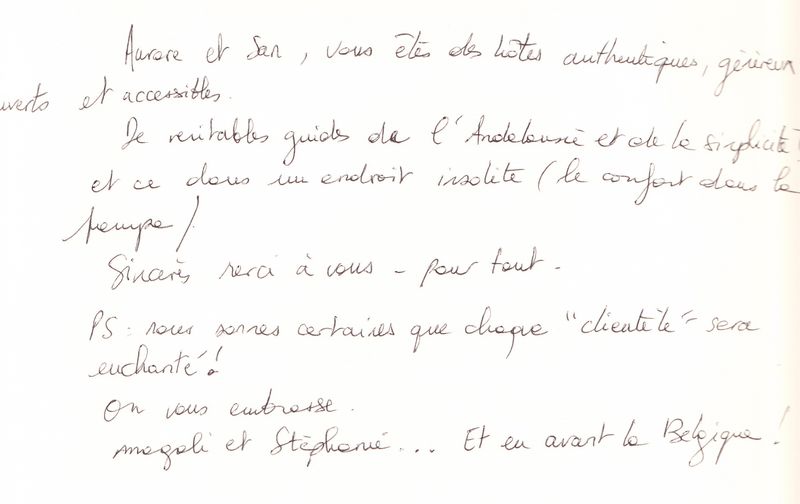 Aurore et San, vous êtes des hôtes authentiques, généreux
uverts et accessibles.
De veritables guides de l'Andalousie et de la simplicité
et ce dans un endroit insolite (le confort dans la
pampa)
Sincères merci à vous - pour tout -
PS: nous sommes certaines que chaque "clientèle" sera
enchanté!
On vous embrasse.
Magali et Stéphanie... Et en avant la Belgique!